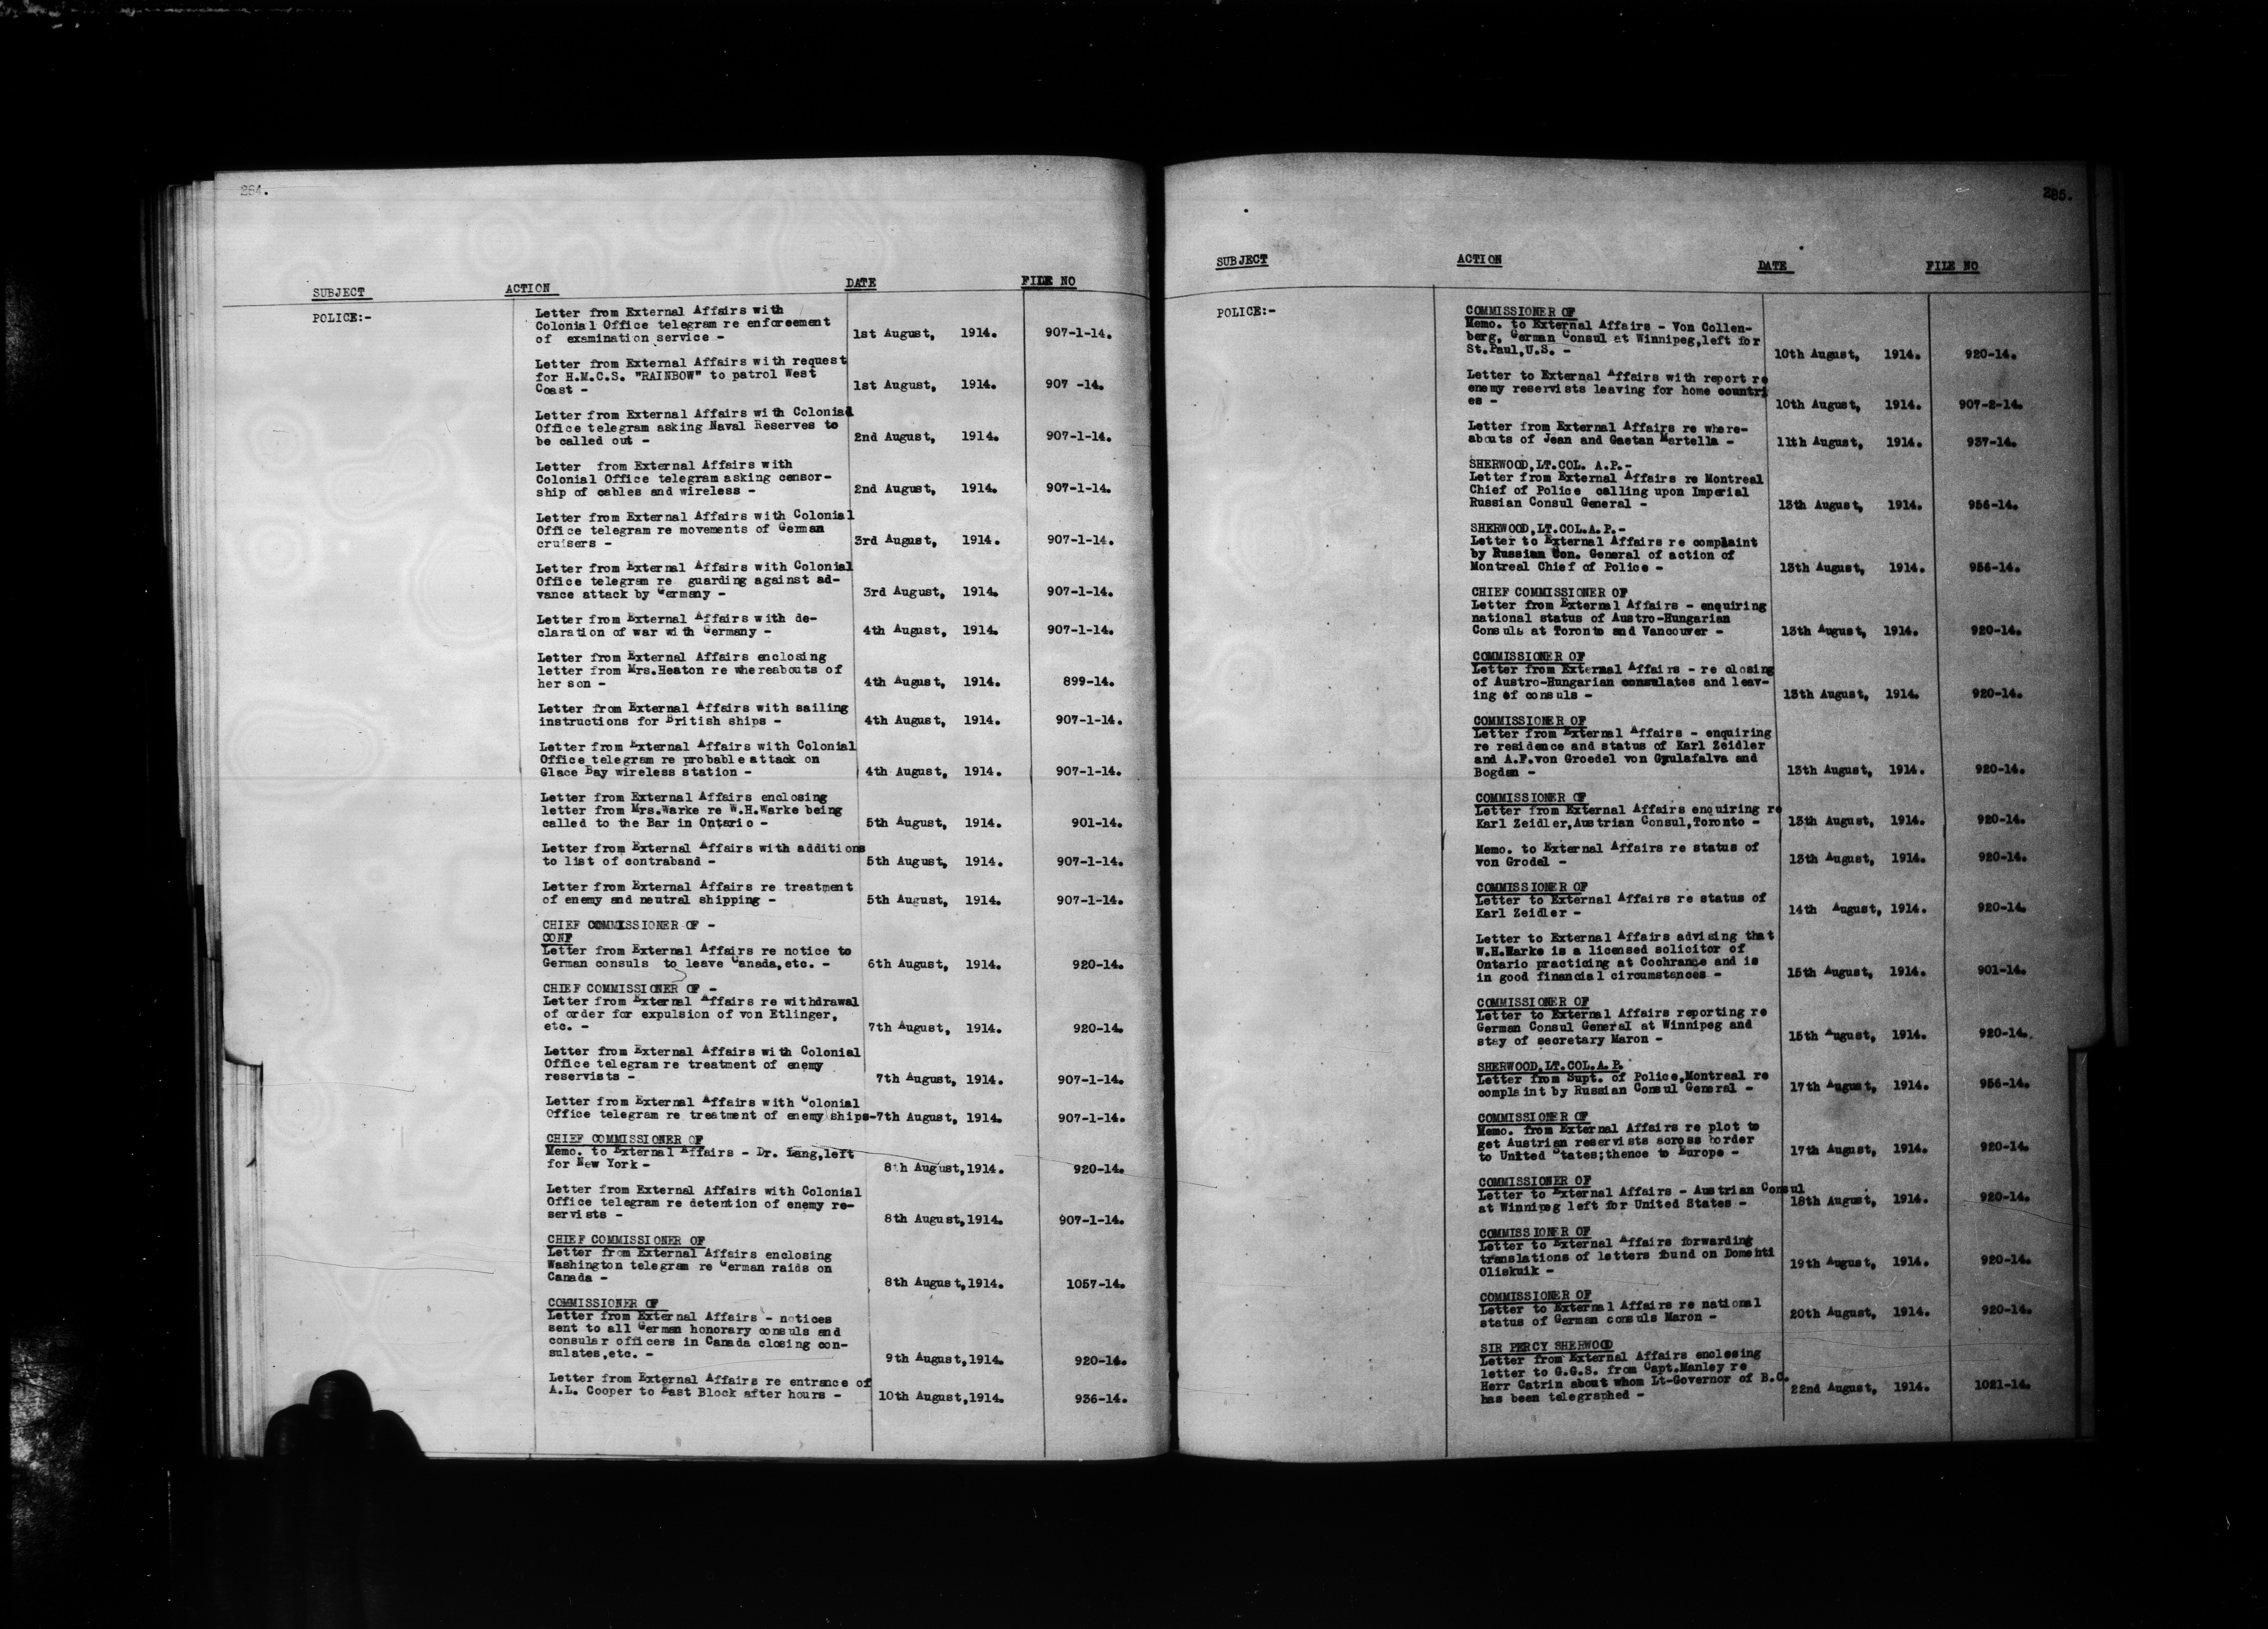 284.
SUBJECT ACTION DATE FILE NO
POLICE:-
Letter from External Affairs with
Colonial Office telegram re enforcement
of examination service - 1st August, 1914. 907-1-14.
Letter from External Affairs with request
for H.M.C.S. "RAINBOW" to patrol West
Coast - 1st August, 1914. 907 -14.
Letter from External Affairs with Colonial
Office telegram asking Naval Reserves to
be called out - 2nd August, 1914. 907-1-14.
Letter from External Affairs with
Colonial Office telegram asking censor-
ship of cables and wireless - 2nd August, 1914. 907-1-14.
Letter from External Affairs with Colonial
Office telegram re movements of German
cruisers - 3rd August, 1914. 907-1-14.
Letter from External Affairs with Colonial
Office telegram re guarding against ad-
vance attack by Germany - 3rd August, 1914. 907-1-14.
Letter from External Affairs with de-
claration of war with Germany - 4th August, 1914. 907-1-14.
Letter from External Affairs enclosing
letter from Mrs.Heaton re whereabouts of
her son - 4th August, 1914. 899-14.
Letter from External Affairs with sailing
instructions for British ships - 4th August, 1914. 907-1-14.
Letter from External Affairs with Colonial
Office telegram re probable attack on
Glace Bay wireless station - 4th August, 1914. 907-1-14.
Letter from External Affairs enclosing
letter from Mrs.Warke re W.H.Warke being
called to the Bar in Ontario - 5th August, 1914. 901-14.
Letter from External Affairs with additions
to list of contraband - 5th August, 1914. 907-1-14.
Letter from External Affairs re treatment
of enemy and neutral shipping - 5th August, 1914. 907-1-14.
CHIEF COMMISSIONER OF -
CONF
Letter from External Affairs re notice to
German consuls to leave Canada,etc. - 6th August, 1914. 920-14.
CHIEF COMMISSIONER OF -
Letter from External Affairs re withdrawal
of order for expulsion of von Etlinger,
etc. - 7th August, 1914. 920-14.
Letter from External Affairs with Colonial
Office telegram re treatment of enemy
reservists - 7th August, 1914. 907-1-14.
Letter from External Affairs with Colonial
Office telegram re treatment of enemy ships-7th August, 1914. 907-1-14.
CHIEF COMMISSIONER OF
Memo. to External Affairs - Dr. Lang,left
for New York - 8th August,1914. 920-14.
Letter from External Affairs with Colonial
Office telegram re detention of enemy re-
servists - 8th August,1914. 907-1-14.
CHIEF COMMISSIONER OF
Letter from External Affairs enclosing
Washington telegram re German raids on
Canada - 8th August,1914. 1057-14.
COMMISSIONER OF
Letter from External Affairs - notices
sent to all German honorary consuls and
consular officers in Canada closing con-
sulates,etc. - 9th August,1914. 920-14.
Letter from External Affairs re entrance of
A.L. Cooper to East Block after hours - 10th August,1914. 936-14.
285.
SUBJECT ACTION DATE FILE NO
POLICE:-
COMMISSIONER OF
Memo. to External Affairs - Von Collen-
berg, German Consul at Winnipeg,left for
St.Paul,U.S. - 10th August, 1914. 920-14.
Letter to External Affairs with report re
enemy reservists leaving for home countri
es - 10th August, 1914. 907-2-14.
Letter from External Affairs re where-
abouts of Jean and Gaetan Martella - 11th August, 1914. 937-14.
SHERWOOD,LT.COL. A.P.-
Letter from External Affairs re Montreal
Chief of Police calling upon Imperial
Russian Consul General - 13th August, 1914. 956-14.
SHERWOOD,LT.COL.A.P.-
Letter to External Affairs re complaint
by Russian Con. General of action of
Montreal Chief of Police - 13th August, 1914. 956-14.
CHIEF COMMISSIONER OF
Letter from External Affairs - enquiring
national status of Austro-Hungarian
Consuls at Toronto and Vancouver - 13th August, 1914. 920-14.
COMMISSIONER OF
Letter from External Affairs - re closing
of Austro-Hungarian consulates and leav-
ing of consuls - 13th August, 1914. 920-14.
COMMISSIONER OF
Letter from External Affairs - enquiring
re residence and status of Karl Zeidler
and A.F.von Groedel von Gyulafalva and
Bogdan - 13th August, 1914. 920-14.
COMMISSIONER OF
Letter from External Affairs enquiring re
Karl Zeidler,Austrian Consul,Toronto - 13th August, 1914. 920-14.
Memo. to External Affairs re status of
von Grodel - 13th August, 1914. 920-14.
COMMISSIONER OF
Letter to External Affairs re status of
Karl Zeidler - 14th August, 1914. 920-14.
Letter to External Affairs advising that
W.H.Warke is a licensed solicitor of
Ontario practicing at Cochrance and is
in good financial circumstances - 15th August, 1914. 901-14.
COMMISSIONER OF
Letter to External Affairs reporting re
German Consul General at Winnipeg and
stay of secretary Maron - 15th August, 1914. 920-14.
SHERWOOD,LT.COL.A.P.
Letter from Supt. of Police,Montreal re
complaint by Russian Consul General - 17th August, 1914. 956-14.
COMMISSIONER OF
Memo. from External Affairs re plot to
get Austrian reservists across border
to United States;thence to Europe - 17th August, 1914. 920-14.
COMMISSIONER OF
Letter to External Affairs - Austrian Consul
at Winnipeg left for United States - 18th August, 1914. 920-14.
COMMISSIONER OF
Letter to External Affairs forwarding
translations of letters found on Domehti
Oliskuik - 19th August, 1914. 920-14.
COMMISSIONER OF
Letter to External Affairs re national
status of German consuls Maron - 20th August, 1914. 920-14.
SIR PERCY SHERWOOD
Letter from External Affairs enclosing
letter to G.G.S. from Capt.Manley re
Herr Catrin about whom Lt-Governor of B.C.
has been telegraphed - 22nd August, 1914. 1021-14.